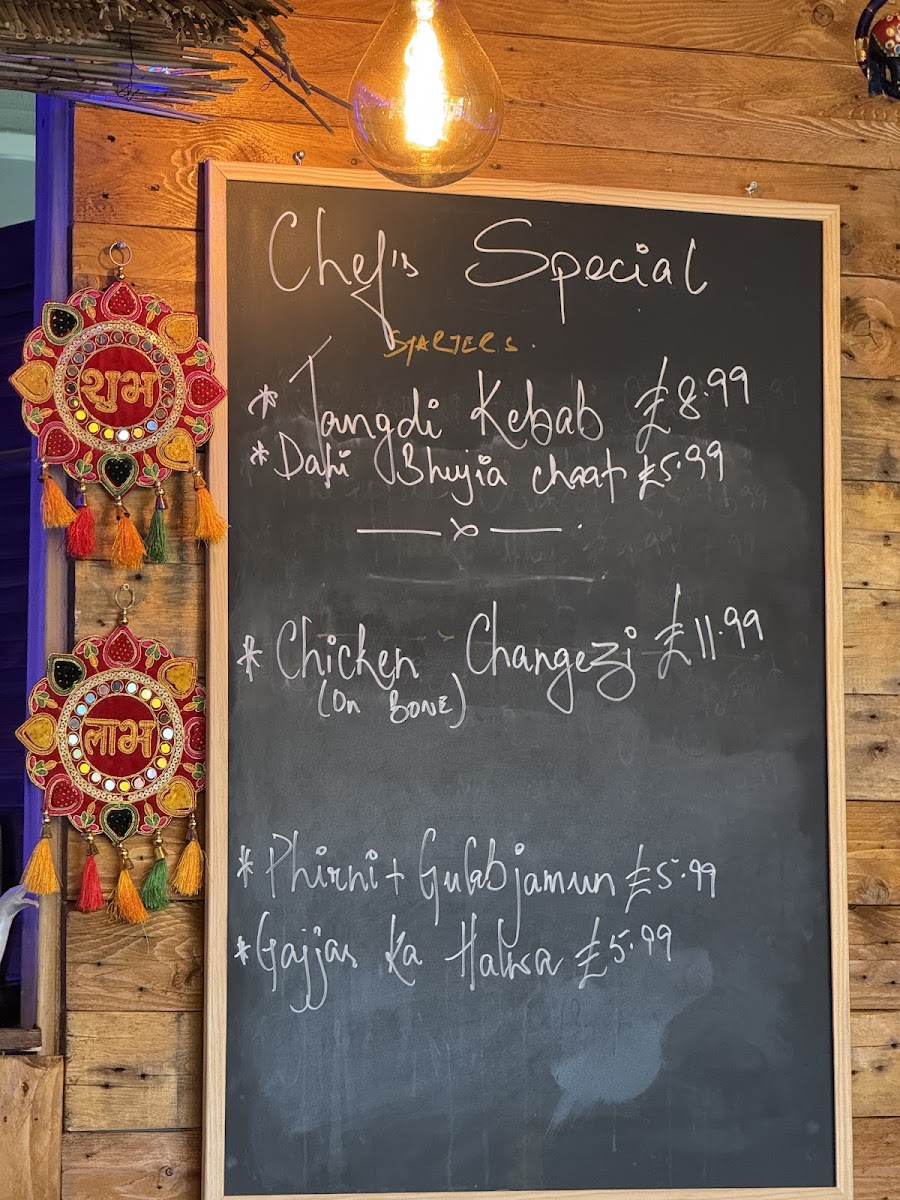 Chef's Special
STARTERS.
* Tangdi Kebab £8.99
* Dahi Bhujia chaat £5.99
* Chicken Changezi £11.99
(On BONE)
* Phirni + Gulab jamun £5.99
* Gajjar Ka Halwa £5.99
शुभ
लाभ